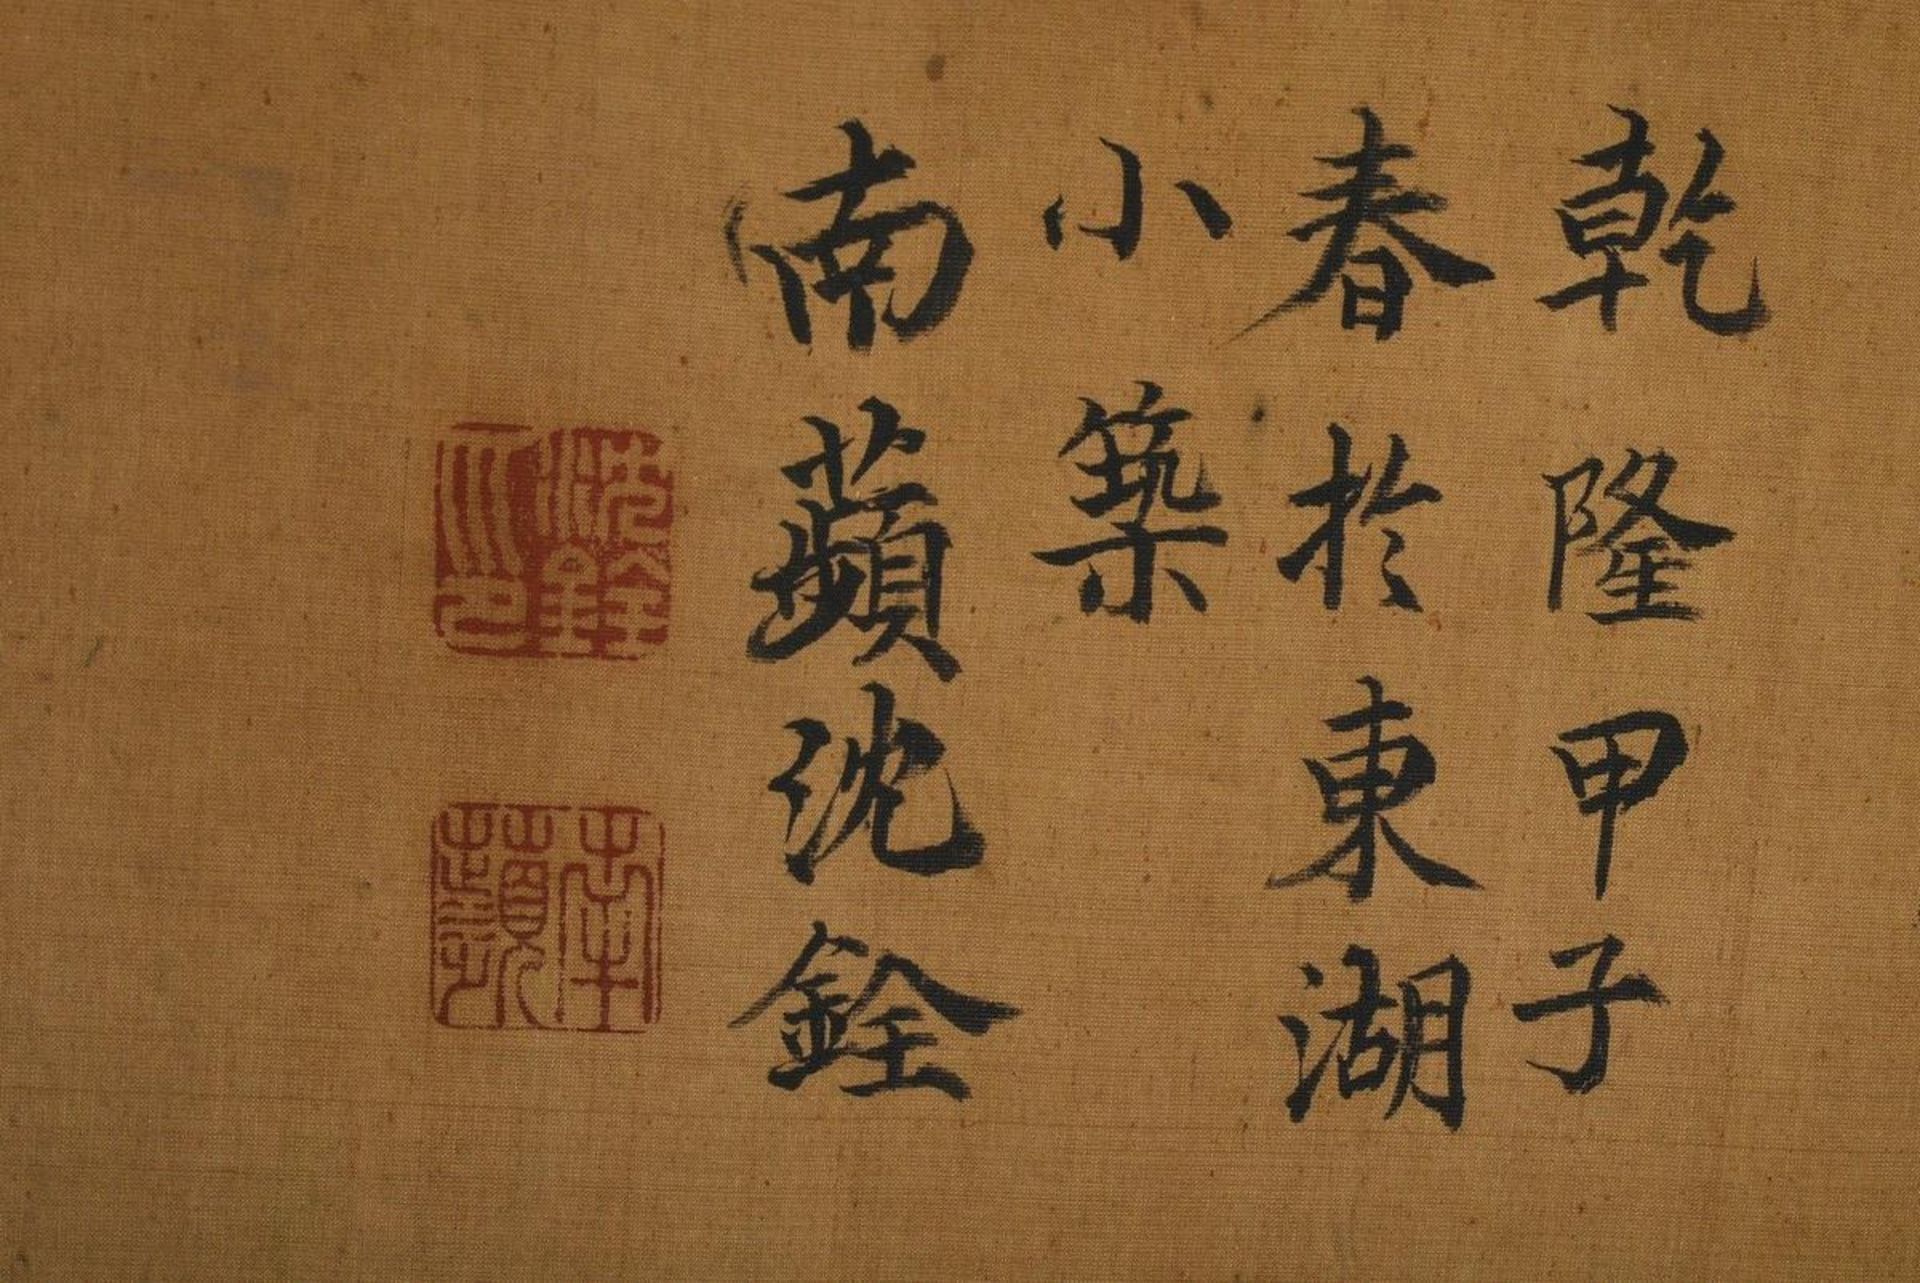 乾隆甲子
春於東湖
小築
南蘋沈銓
沈銓之印
南蘋